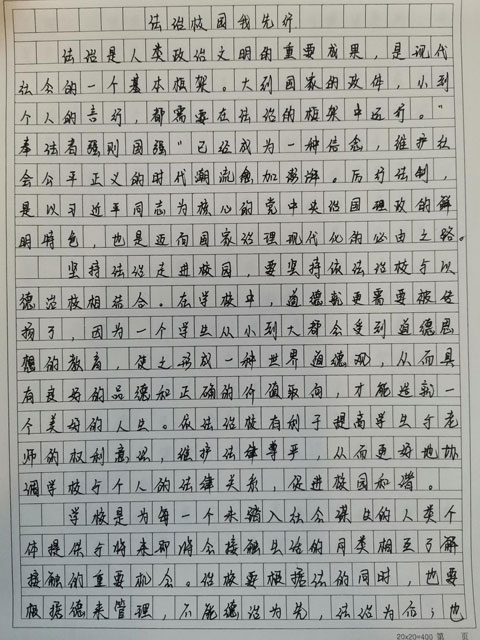 法治校园我先行
法治是人类政治文明的重要成果，是现代
社会的一个基本框架。大到国家的政体，小到
个人的言行，都需要在法治的框架中运行。“
奉法者强则国强”已经成为一种信念，维护社
会公平正义的时代潮流愈加澎湃。厉行法制，
是以习近平同志为核心的党中央治国理政的鲜
明特色，也是迈向国家治理现代化的必由之路。
坚持法治走进校园，要坚持依法治校与以
德治校相结合。在学校中，道德就更需要被传
扬了，因为一个学生从小到大都会受到道德思
想的教育，使之形成一种世界道德观，从而具
有良好的品德和正确的价值取向，才能造就一
个美好的人生。依法治校有利于提高学生与老
师的权利意识，维护法律尊严，从而更好地协
调学校与个人的法律关系，促进校园和谐。
学校是为每一个未踏入社会谋生的人类个
体提供与将来即将会接触生活的同类相互了解
接触的重要机会。治校要根据法的同时，也要
根据德来管理，不能德治为先，法治为后；也
20×20=400 第 页